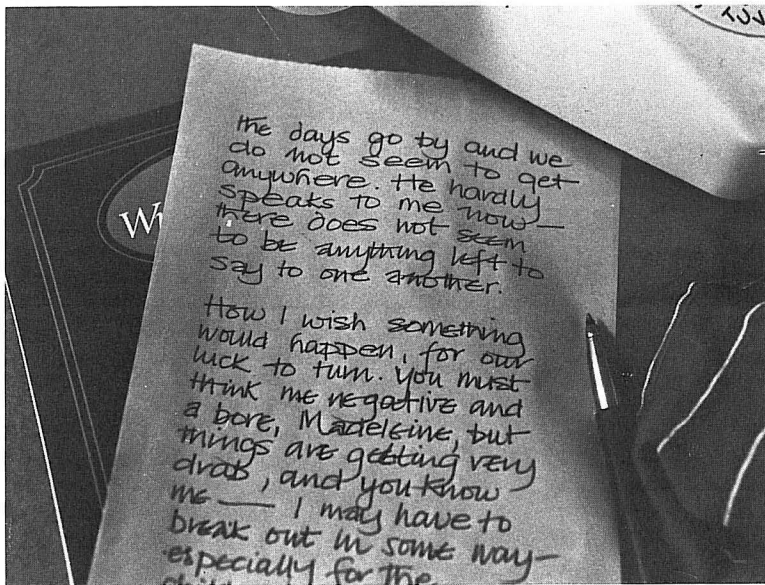 the days go by and we
do not seem to get
anywhere. He hardly
speaks to me now—
there does not seem
to be anything left to
say to one another.
How I wish something
would happen, for our
luck to turn. You must
think me negative and
a bore, Madeleine, but
things are getting very
drab, and you know
me — I may have to
break out in some way—
especially for the